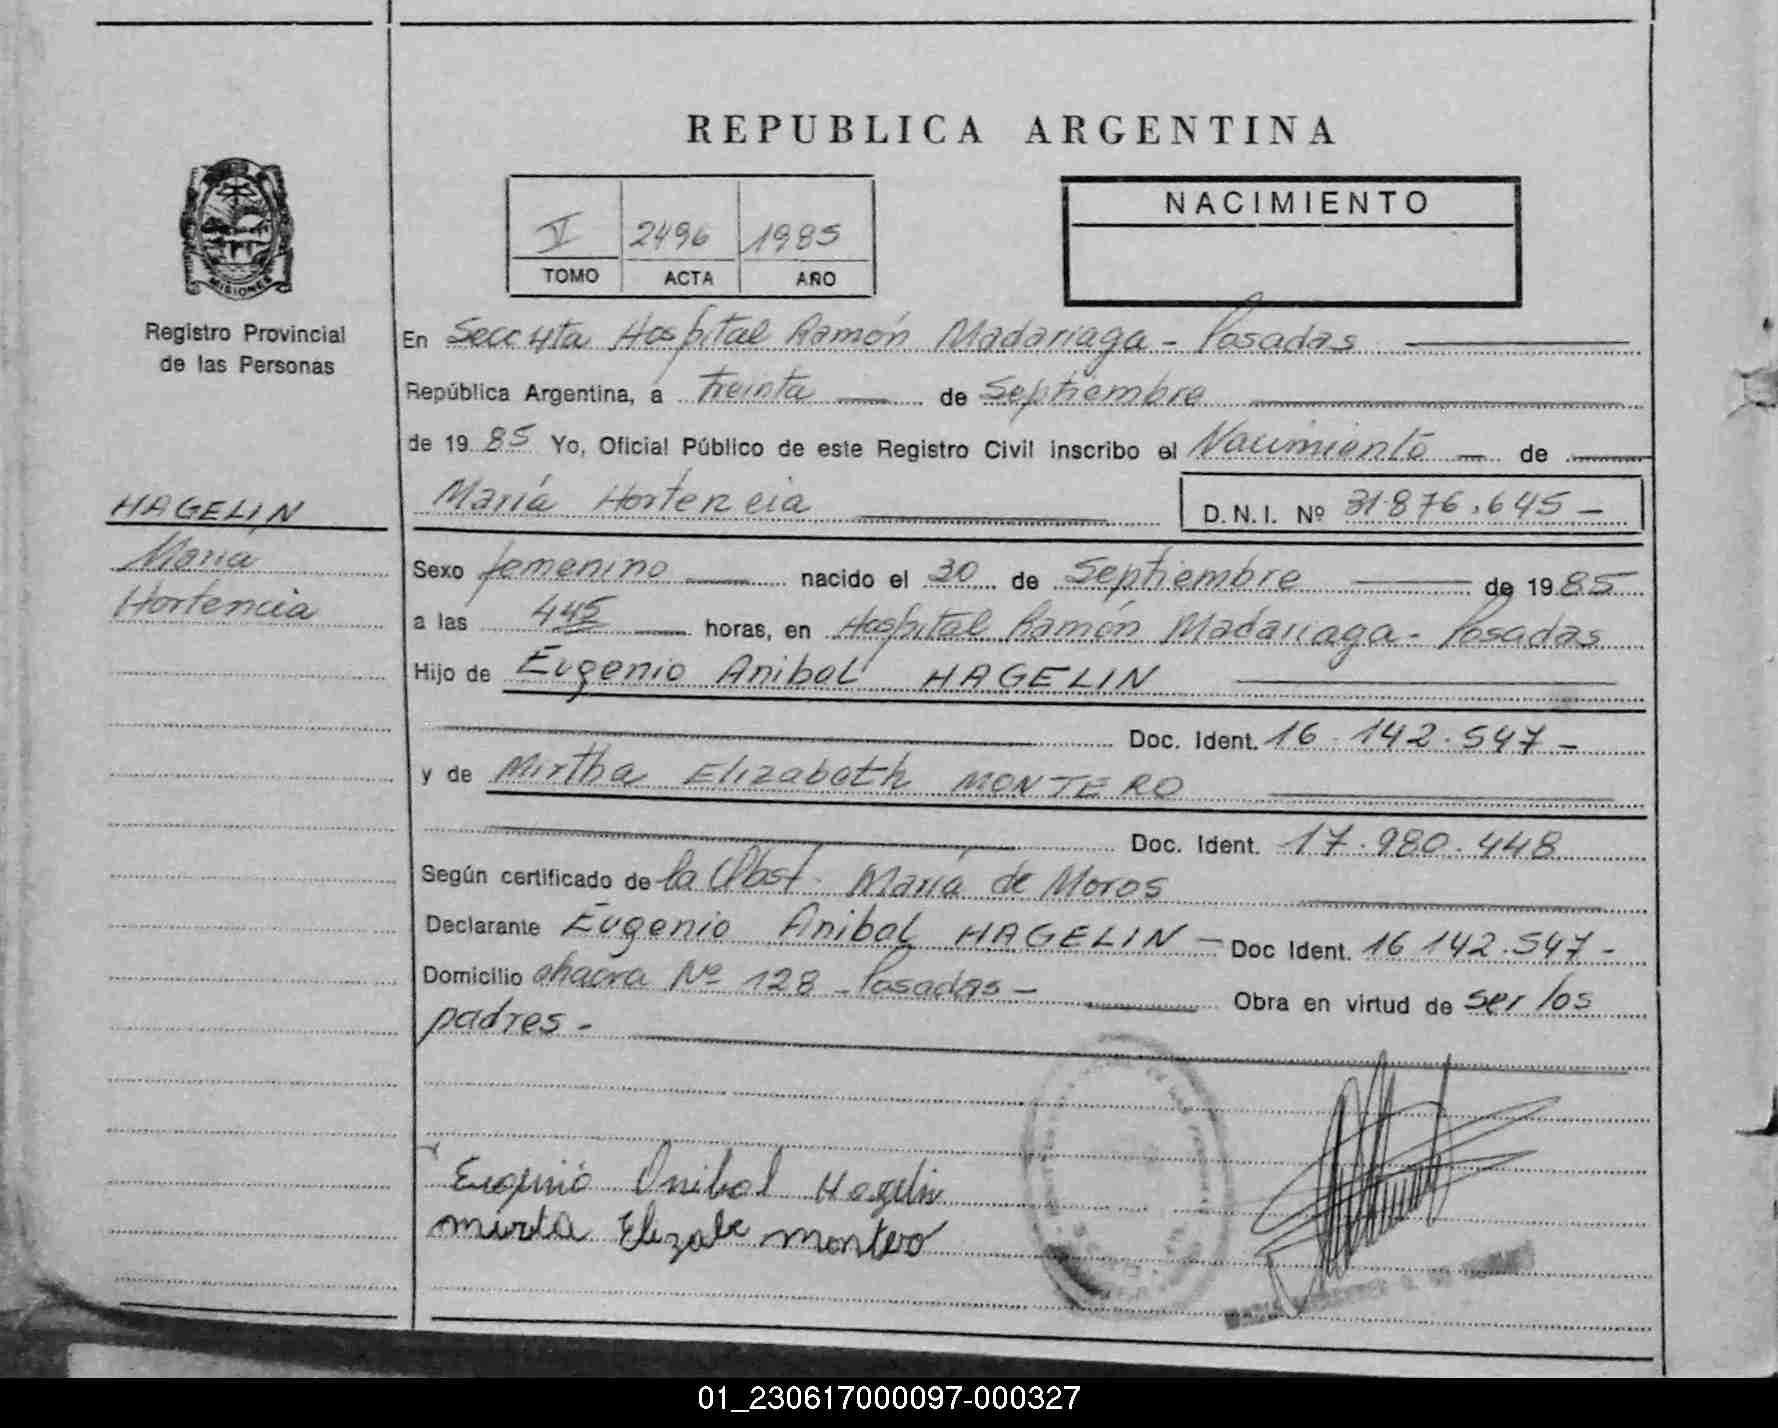 REPUBLICA ARGENTINA
NACIMIENTO
V 2496 1985
TOMO ACTA AÑO
MISIONES
Registro Provincial
de las Personas
En Secc 4ta Hospital Ramón Madariaga - Posadas
República Argentina, a treinta de Septiembre
de 1985 Yo, Oficial Público de este Registro Civil inscribo el Nacimiento de
HAGELIN
María Hortencia
D.N.I. Nº 31.876.645 -
Maria
Hortencia
Sexo femenino nacido el 30 de Septiembre de 1985
a las 445 horas, en Hospital Ramón Madariaga - Posadas
Hijo de Eugenio Anibal HAGELIN
Doc. Ident. 16.142.547 -
y de Mirtha Elizabeth MONTERO
Doc. Ident. 17.980.448
Según certificado de la Obst. María de Moros
Declarante Eugenio Anibal HAGELIN - Doc Ident. 16 142.547 -
Domicilio chacra Nº 128 - Posadas - Obra en virtud de ser los
padres -
Eugenio Anibal Hagelin
mirta Elizabe montero
01_230617000097-000327